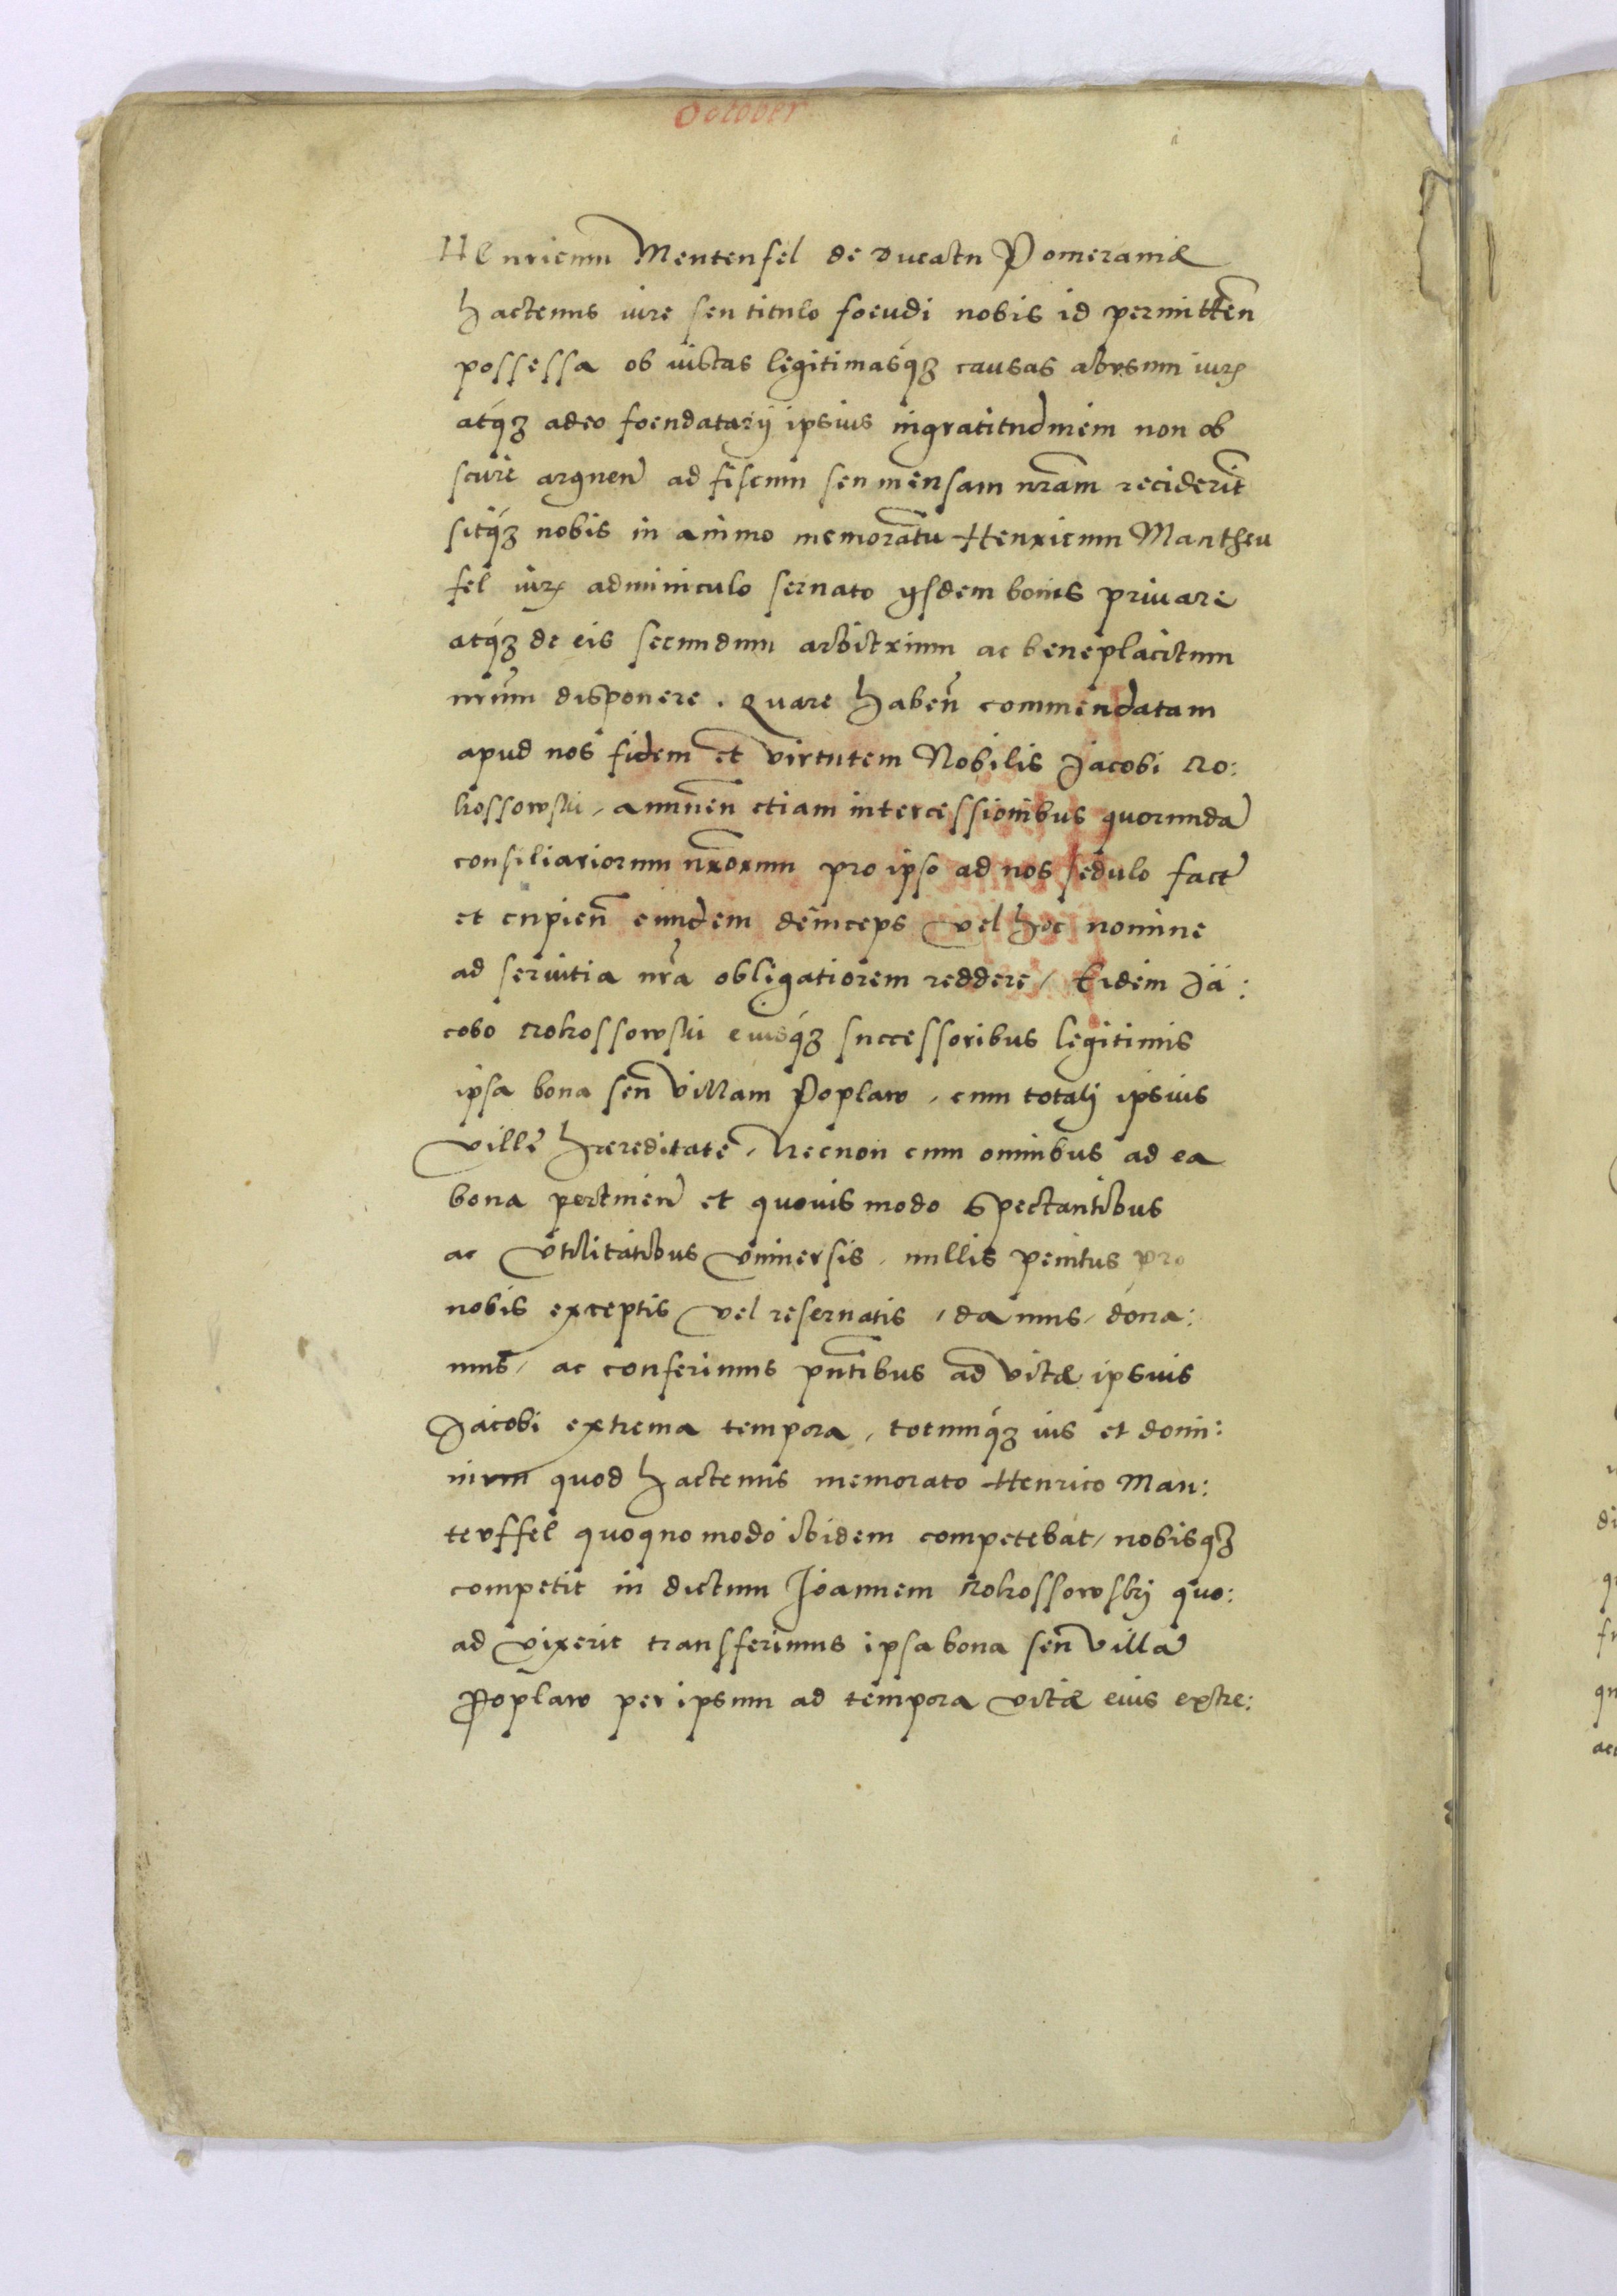 October
HEnricum Mentenfel de Ducatu Pomeraniæ
hactenus iure seu titulo foeudi nobis id permitteñ
possessa ob iustas legitimasq́ꝫ causas abvsum iurꝭ
atq́ꝫ adeo foeudatarij ipsius ingratitudinem non ob
scure arguen̄ ad fiscum seu mensam nr̄am reciderīt
sitq́ꝫ nobis in animo memoratū Henricum Mantheu
fel iurꝭ adminiculo seruato ijsdem bonis priuare
atq́ꝫ de eis secundum arbitrium ac beneplacitum
nr̄um disponere. Quare haben̄ commendatam
apud nos fidem et virtutem Nobilis Jacobi Ro:
kossowski, annuen̄ etiam intercessionibus quorundā
consiliariorum nr̄orum pro ipso ad nos sedulo fact̄
et cupien̄ eundem deinceps vel hoc nomine
ad seruitia nr̄a obligatiorem reddere, Eidem Ja:
cobo Rokossowski eiusq́ꝫ successoribus legitimis
ipsa bona seu villam Poplaw, cum totalj ipsius
ville hæreditate, Necnon cum omnibus ad ea
bona pertinen̄ et quouis modo spectantibus
ac vtilitatibus vniuersis, nullis penitus pro
nobis exceptis vel reseruatis, damus, dona:
mus, ac conferimus pn̄tibus ad vitæ ipsius
Jacobi extrema tempora, totumq́ꝫ ius et domi:
nium quod hactenus memorato Henrico Man:
teuffel quoquomodo ibidem competebat, nobisqꝫ
competit in dictum Joannem Rokossowskj quo:
ad vixerit transferimus ipsa bona seu villā
Poplaw per ipsum ad tempora vitæ eius extre: